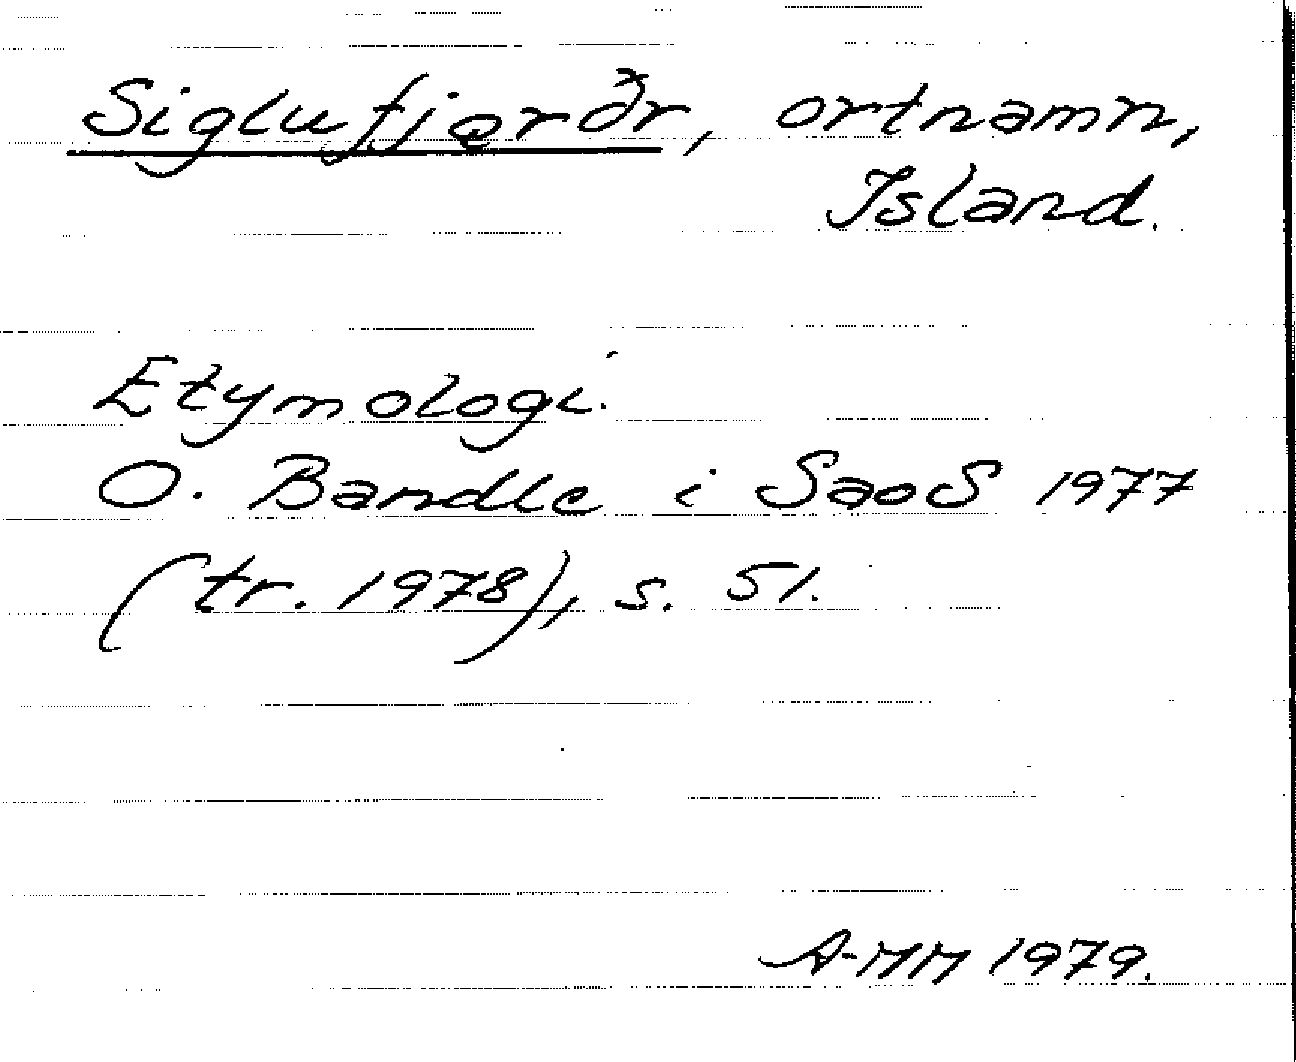 Siglufjǫrðr, ortnamn,
Island.
Etymologi.
O. Bandle i SaoS 1977
(tr. 1978), s. 51.
A-MM 1979.